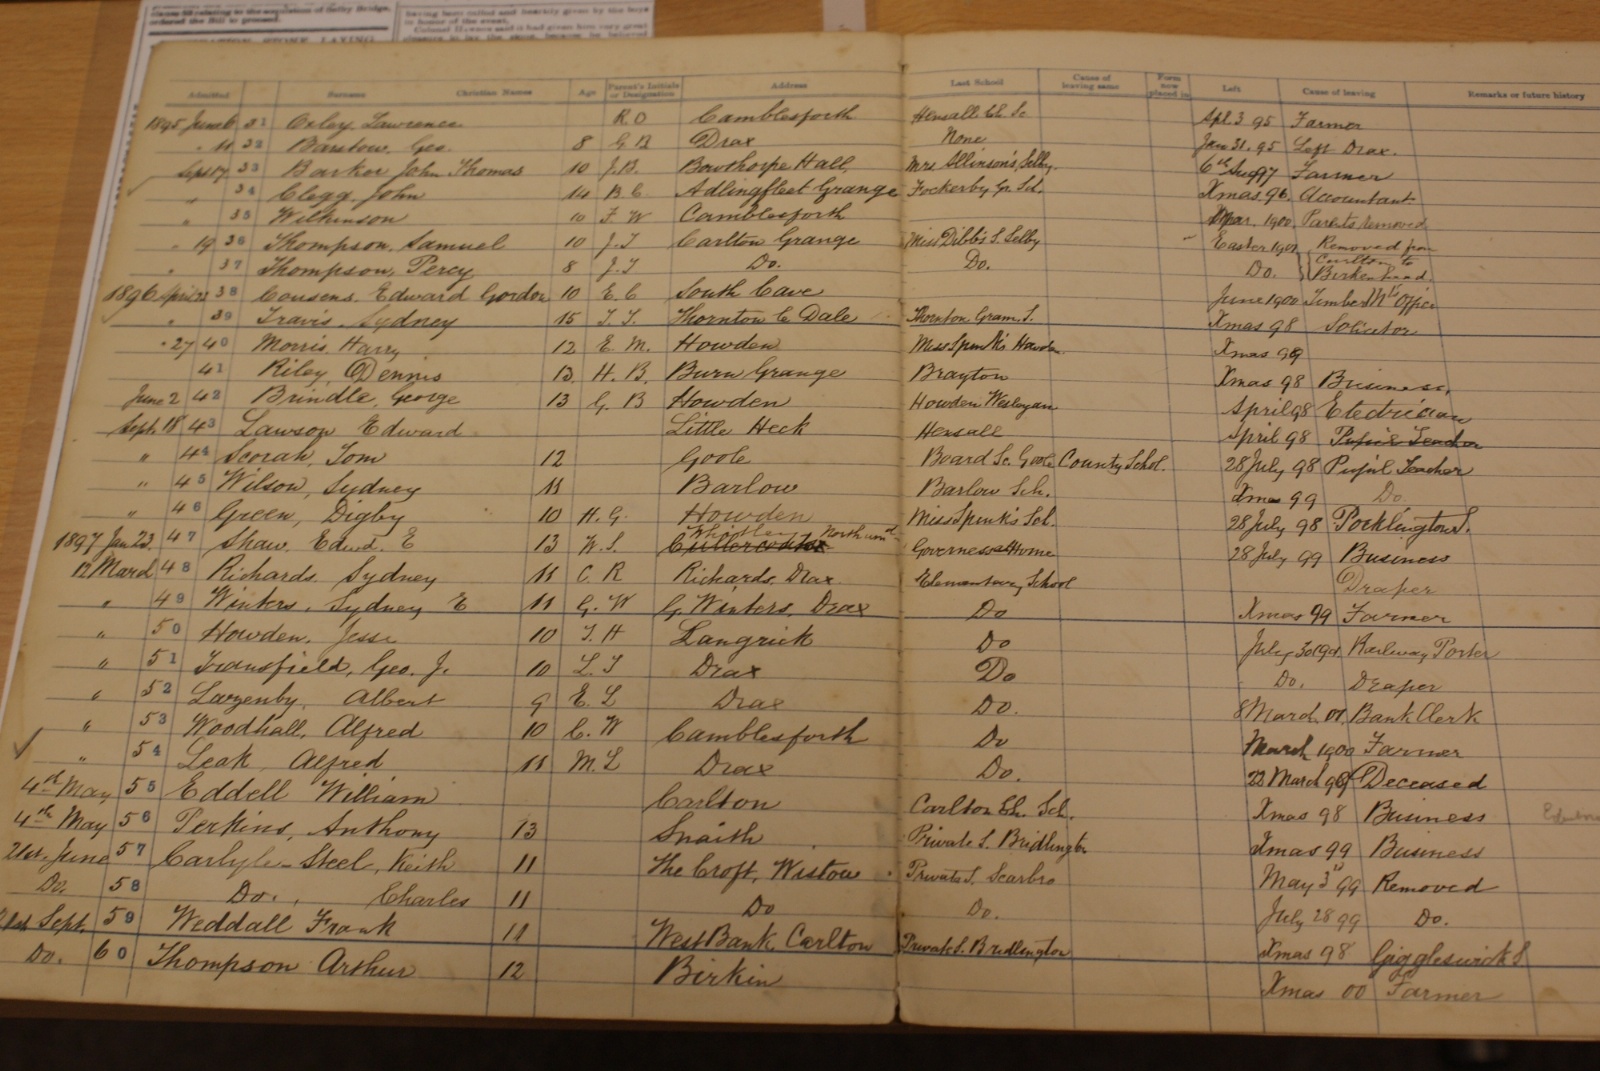 ordered the Bill to proceed.
having been called and heartily given by the boys
in honor of the event.
Colonel said it had given him very great
Admitted Surname Christian Names Age Parent's Initials or Designation Address Last School Cause of leaving same Form now placed in Left Cause of leaving Remarks or future history
1895 June 6 31 Oxley Lawrence R O Camblesforth Hensall Ch. Sc Apl 3 95 Farmer
" 11 32 Barstow. Geo. 8 G. B Drax None Jan 31. 95 Left Drax.
Sept 17 33 Barker John Thomas 10 J.B. Bowthorpe Hall, Mrs Allinson's, Selby. 6th Aug 97 Farmer
" 34 Clegg, John 14 B C Adlingfleet Grange Fockerby Gr. Sch. Xmas 96. Accountant
" 35 Wilkinson 10 F W Camblesforth Mar. 1900. Parents removed
" 19 36 Thompson. Samuel 10 J.T Carlton Grange Miss Dibb's S. Selby Easter 1901 Removed from
" 37 Thompson, Percy 8 J.T Do. Do. Do. } Carlton to Birkenhead.
1896 April 22 38 Cousens. Edward Gordon 10 E. C South Cave June 1900 Timber Mts Office
" 39 Travis. Sydney 15 T. T. Thornton le Dale Thornton Gram. S. Xmas 98 Solicitor
" 27 40 Morris. Harry 12 E. M. Howden Miss Spink's Howden Xmas 99
41 Riley, Dennis 13. H. B. Burn Grange Brayton Xmas 98 Business,
June 2 42 Brindle, George 13 G. B Howden Howden Wesleyan April 98 Electrician
Sept. 18 43 Lawson Edward Little Heck Hensall April 98 Pupil Teacher
" 44 Scorah, Tom 12 Goole Board Sc. Goole County Schol. 28 July 98 Pupil Teacher
" 45 Wilson, Sydney 11 Barlow Barlow Sch. Xmas 99 Do.
" 46 Green, Digby 10 H. G. Howden Miss Spink's Sch. 28 July 98 Pocklington S.
1897 Jan 23. 47 Shaw. Edwd. E 13 W. S. Cullercoates Whitley Governess at Home 28 July 99 Business
12 March 48 Richards. Sydney 11 C. R Richards, Drax. Elementary School Draper
" 49 Winters. Sydney E 11 G. W G. Winters, Drax Do Xmas 99 Farmer
" 50 Howden. Jesse 10 T. H Langrick Do July 30 1901 Railway Porter
" 51 Transfield, Geo. J. 10 L. T Drax Do Do. Draper
" 52 Lazenby, Albert 9 E. L Drax Do. 8 March 01. Bank Clerk
" 53 Woodhall, Alfred 10 C. W Camblesforth Do March 1900 Farmer
" 54 Leak, Alfred 11 M. L Drax Do. 22 March Deceased
4th May 55 Eddell William Carlton Carlton Ch. Sch. Xmas 98 Business
4th May 56 Perkins, Anthony 13 Snaith Private S. Bridlington Xmas 99 Business
21st. June 57 Carlyle-Steel, Keith 11 The Croft, Wistow Private S. Scarbro May 3rd 99 Removed
Do. 58 Do., Charles 11 Do Do. July 28 99 Do.
Sept. 59 Weddall Frank 11 West Bank, Carlton Private S. Bridlington Xmas 98 Giggleswick S
Do. 60 Thompson Arthur 12 Birkin Xmas 00 Farmer